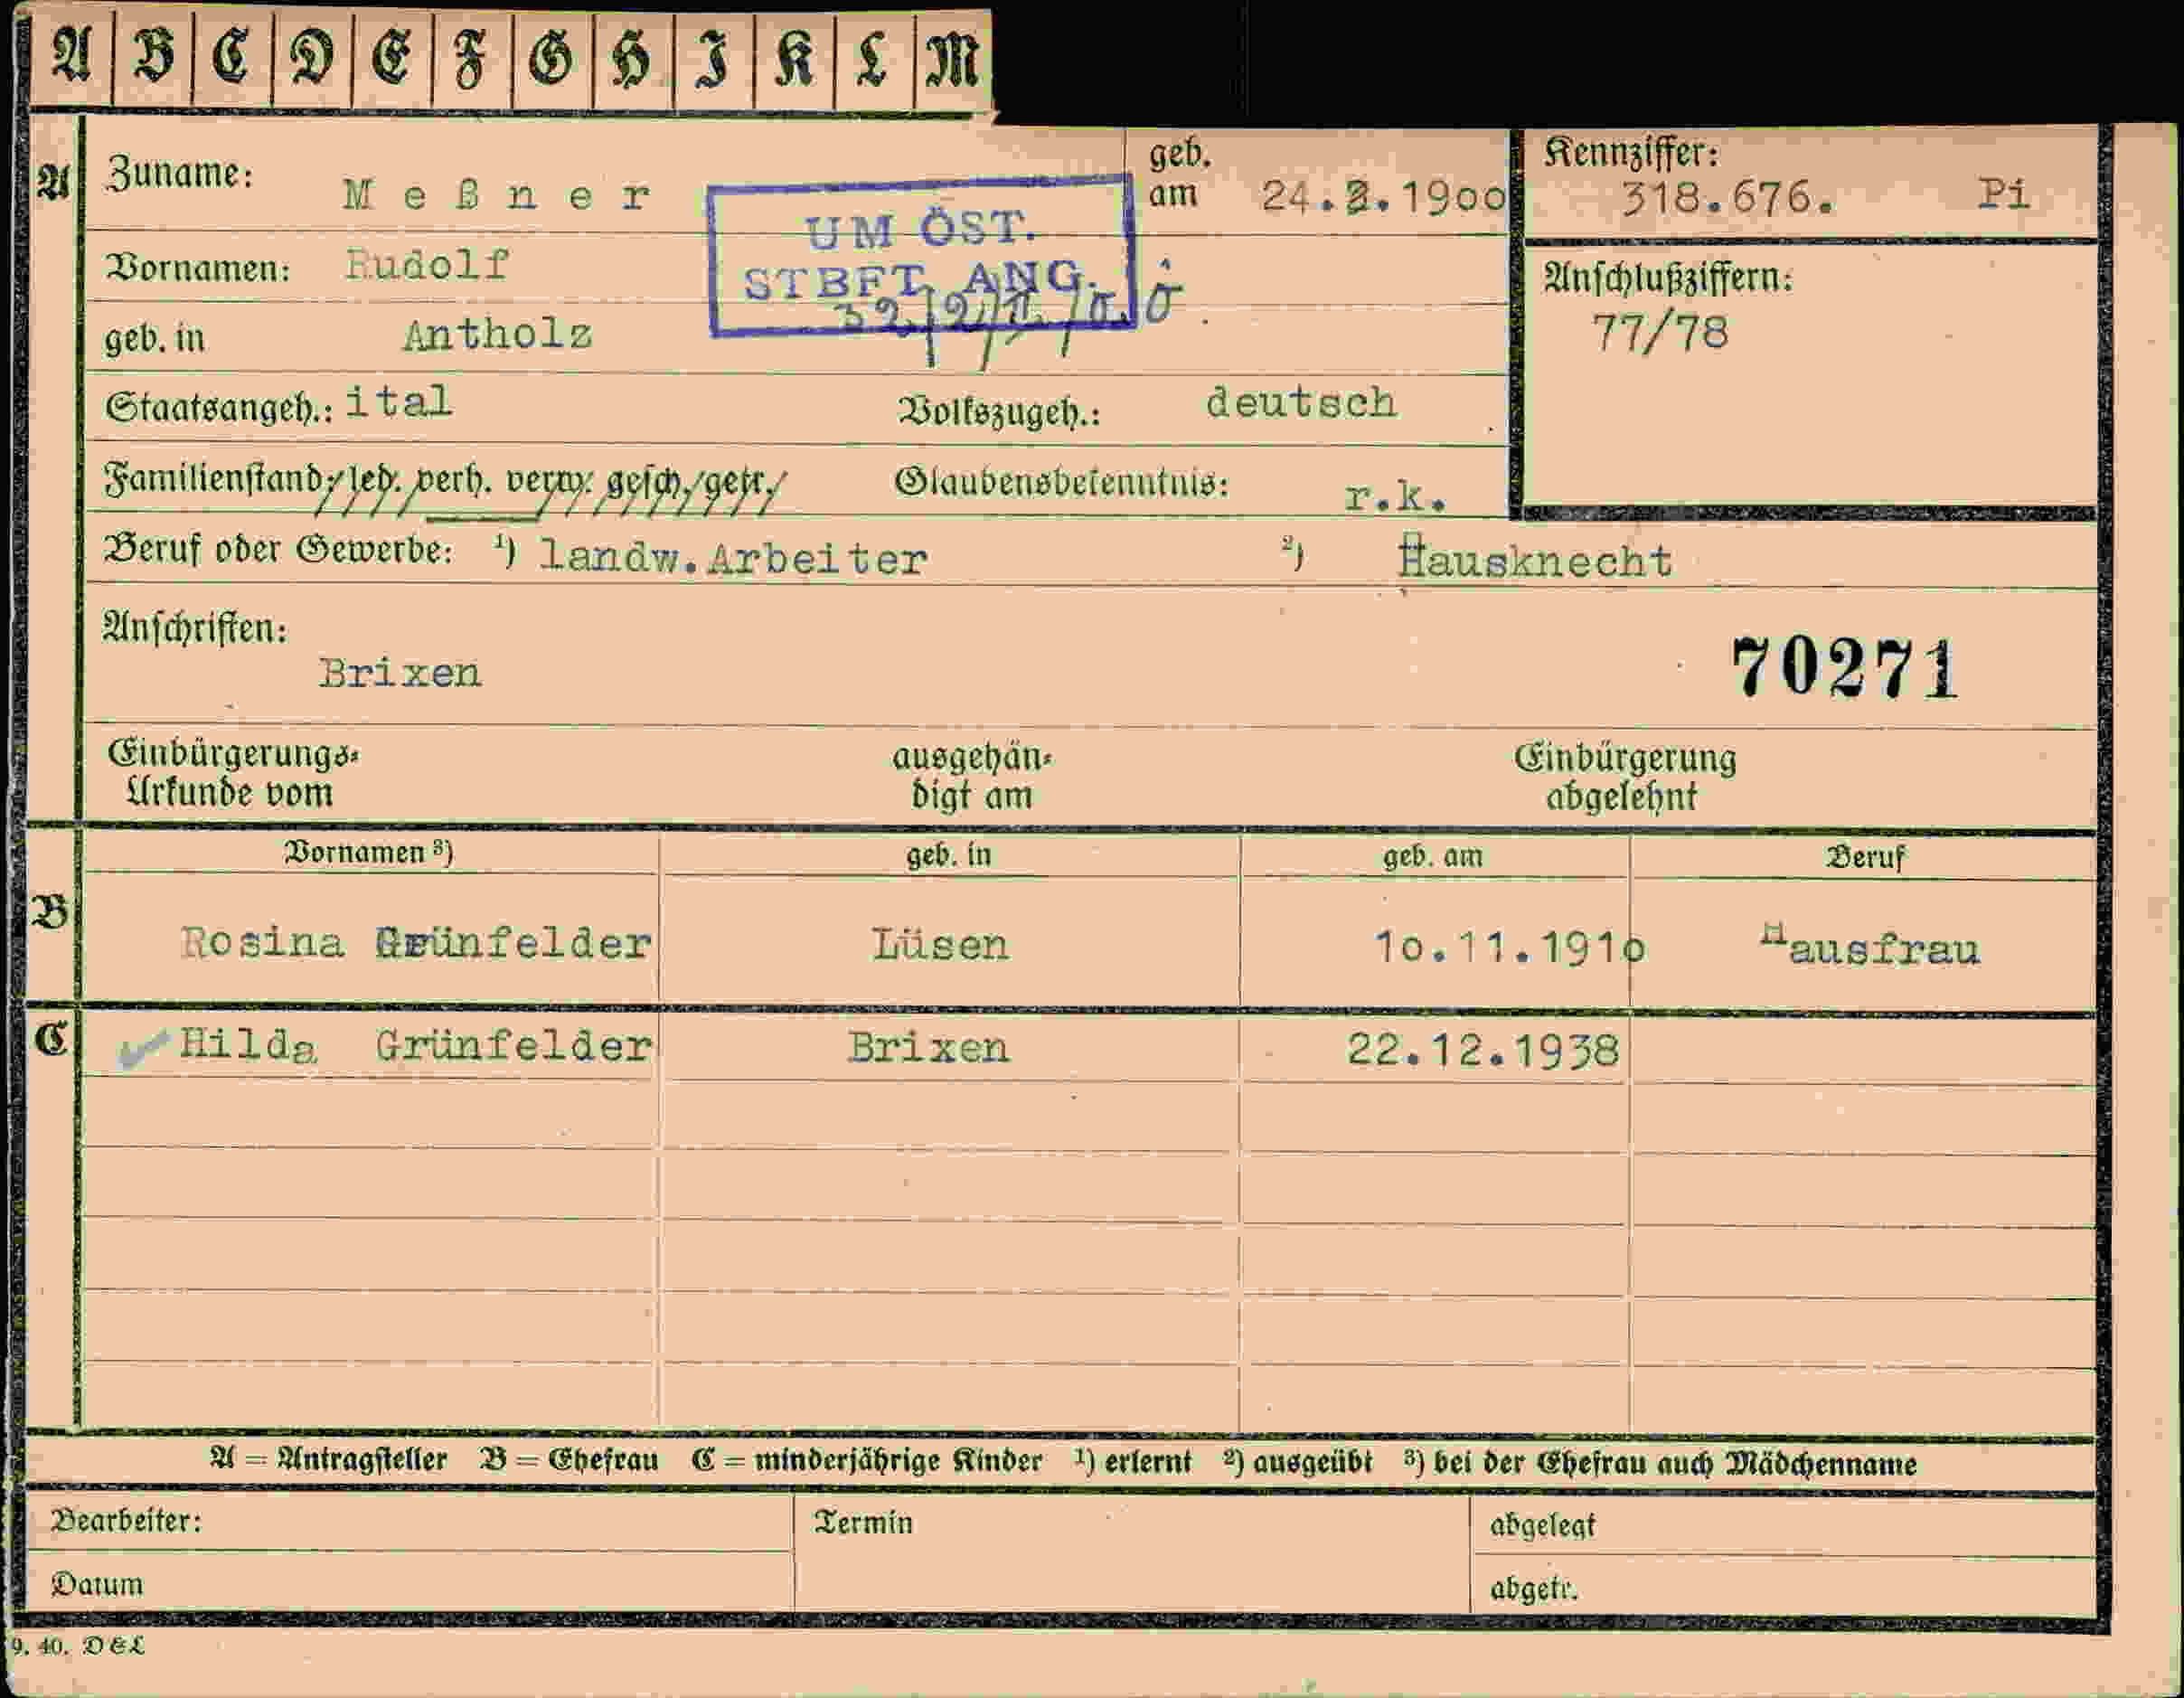 A B C D E F G H I K L M
A Zuname: Meßner geb. am 24.2.1900 Kennziffer: 318.676. Pi
UM ÖST.
STBFT. ANG.
Vornamen: Rudolf Anschlußziffern:
geb. in Antholz 77/78
Staatsangeh.: ital Volkszugeh.: deutsch
Familienstand: led. verh. verw. gesch. getr. Glaubensbekenntnis: r.k.
Beruf oder Gewerbe: ¹) landw.Arbeiter ²) Hausknecht
Anschriften:
Brixen 70271
Einbürgerungs= ausgehän= Einbürgerung
Urkunde vom digt am abgelehnt
Vornamen ³) geb. in geb. am Beruf
B Rosina Grünfelder Lüsen 10.11.1910 Hausfrau
C Hilda Grünfelder Brixen 22.12.1938
A = Antragsteller B = Ehefrau C = minderjährige Kinder ¹) erlernt ²) ausgeübt ³) bei der Ehefrau auch Mädchenname
Bearbeiter: Termin abgelegt
Datum abgetr.
9. 40. DEL